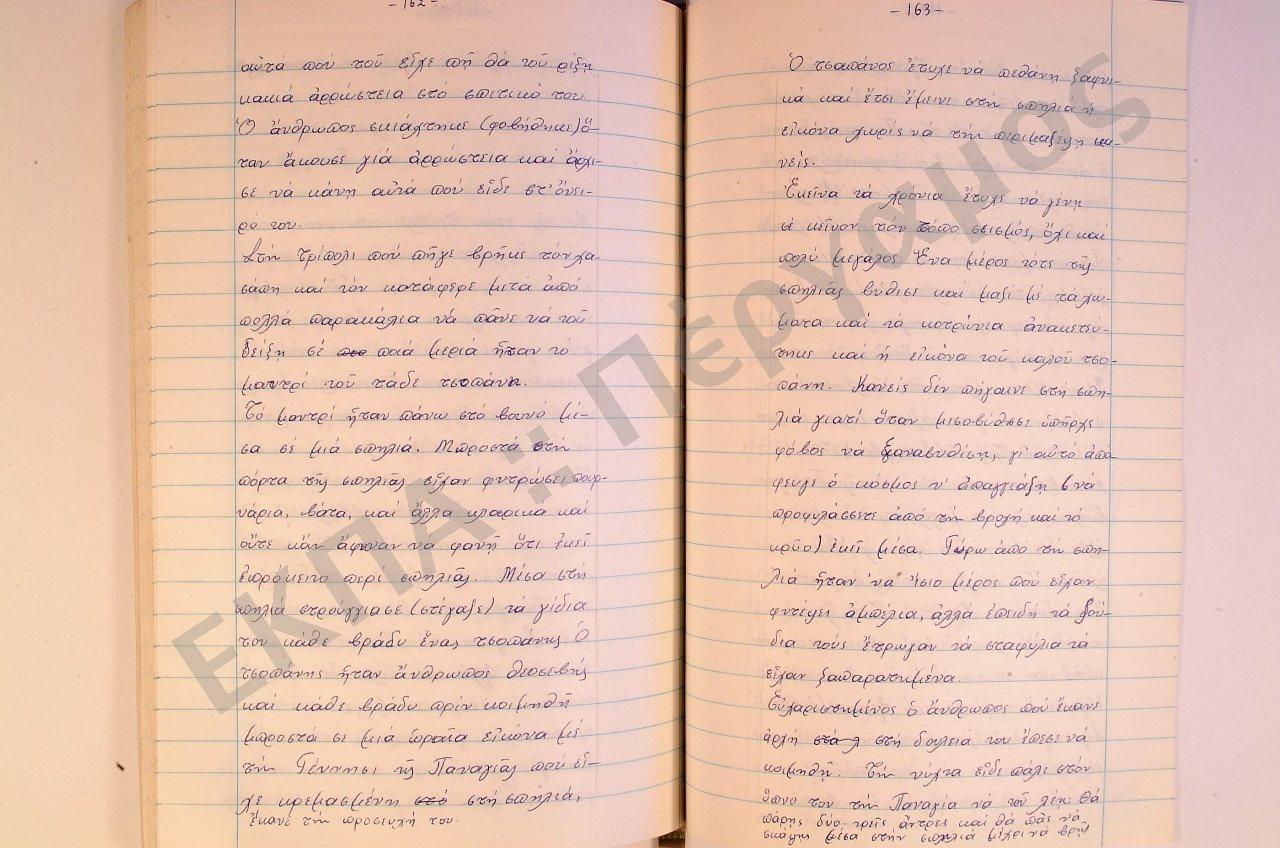 - 162 -
αὐτά πού τοῦ εἶχε πῆ θά τοῦ ρίξη
κακιά ἀρρώστεια στό σπιτικό του.
Ὁ ἄνθρωπος σκιάχτηκε (φοβήθηκε) ὅ-
ταν ἄκουσε γιά ἀρρώστεια καί ἄρχι-
σε νά κάνη αὐτά πού εἶδε στ' ὄνει-
ρό του.
Στη Τρίπολι πού πῆγε βρῆκε τόν χα-
σάπη καί τόν κατάφερε μετά ἀπό
πολλά παρακάλια νά πᾶνε νά τοῦ
δείξη σέ ποιά μεριά ἦταν τό
μαντρί τοῦ τάδε τσοπάνη.
Τό μαντρί ἦταν πάνω στό βουνό μέ-
σα σέ μιά σπηλιά. Μπροστά στη
πόρτα τῆς σπηλιᾶς εἶχαν φυτρώσει πουρ-
νάρια, βάτα, καί ἄλλα κλαρικά καί
οὔτε κἄν ἄφιναν νά φανῆ ὅτι ἐκεῖ
ἐπρόκειτο περί σπηλιᾶς. Μέσα στή
σπηλιά στρούγγιασε (στέγαζε) τά γίδια
του κάθε βράδυ ἕνας τσοπάνης. Ὁ
τσοπάνης ἦταν ἄνθρωπος θεοσεβής
καί κάθε βράδυ πρίν κοιμηθῆ
μπροστά σε μιά ὡραία εἰκόνα μέ
τήν Γέννησι τῆς Παναγιᾶς πού εἶ-
χε κρεμασμένη στό στή σπηλιά,
ἔκανε τήν προσευχή του.
- 163 -
Ὁ τσοπάνος ἔτυχε νά πεθάνη ξαφνι-
κά καί ἔτσι ἔμεινε στή σπηλιά ἡ
εἰκόνα χωρίς νά τήν περιμαζέψη κα
νείς.
Ἐκεῖνα τά χρόνια ἔτυχε νά γένη
σέ κεῖνον τόν τόπο σεισμός, ὄχι καί
πολύ μεγάλος. Ἕνα μέρος τότε τῆς
σπηλιᾶς βύθισε καί μαζί μέ τά χώ-
ματα καί τά κοτρώνια ἀνακατεύ-
τηκε καί ἡ εἰκόνα τοῦ καλοῦ τσο-
πάνη. Κανείς δέν πήγαινε στή σπη-
λιά γιατί ὅταν μισοβύθισε ὑπῆρχε
φόβος νά ξαναβυθίση, γι' αὐτό ἀπό
φευγε ὁ κόσμος ν' ἀπαγγιάζη (νά
προφυλάσσετε ἀπό τήν βροχή καί τό
κρῦο) ἐκεῖ μέσα. Γύρω ἀπό τήν σπη-
λιά ἦταν 'να ἴσιο μέρος πού εἶχαν
φυτέψει ἀμπέλια, ἀλλά ἐπειδή τά ζού-
δια τούς ἔτρωγαν τά σταφύλια τά
εἶχαν ξαπαρατημένα.
Εὐχαριστημένος ὁ ἄνθρωπος πού ἔκανε
ἀρχή στή δουλειά του ἔπεσε νά
κοιμηθῆ. Τήν νύχτα εἶδε πάλι στόν
ὕπνο του τήν Παναγία νά τοῦ λέη: Θά
πάρης δύο-τρεῖς ἄντρες καί θά πᾶς νά
σκάψης μέσα στήν σπηλιά μέχρι νά βρῆς
ΕΚΠΑ :: Πέργαμος